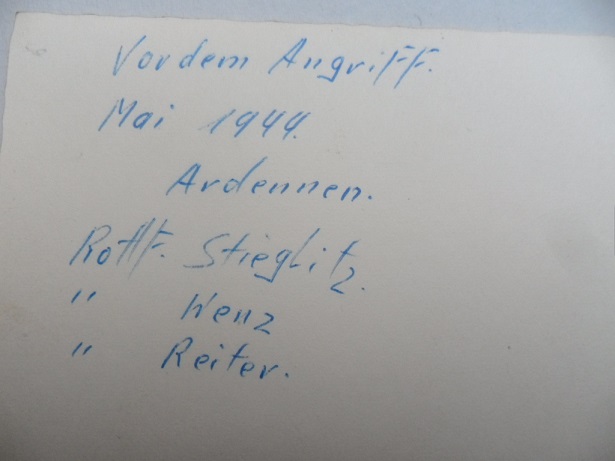 Vor dem Angriff.
Mai 1944.
Ardennen.
Rottf. Stieglitz.
" Wenz
" Reiter.